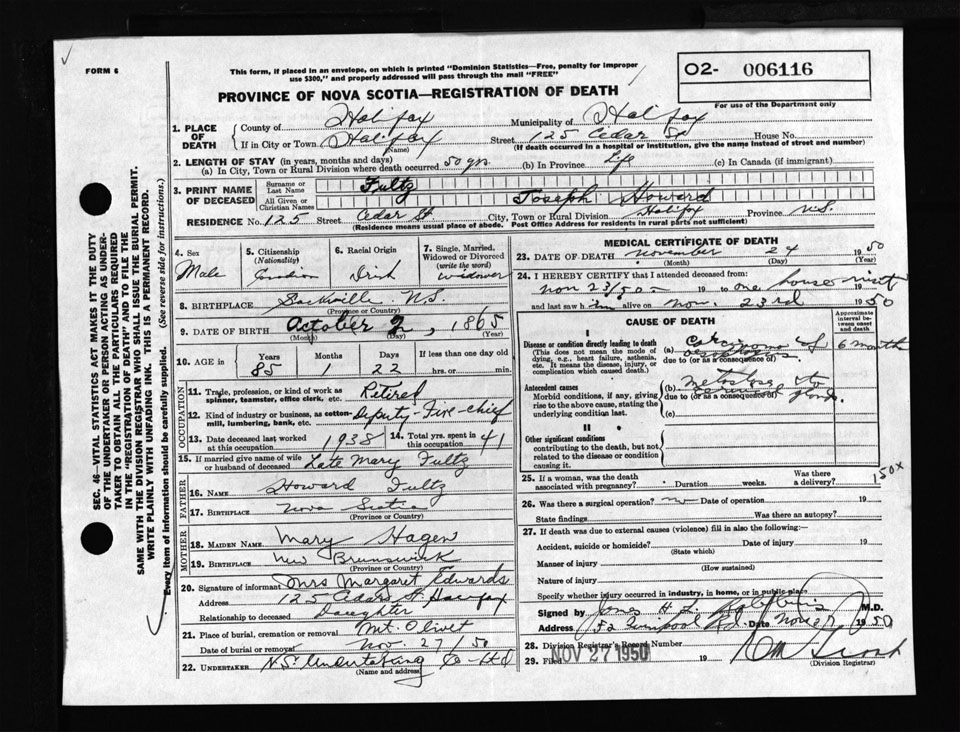 FORM 6
This form, if placed in an envelope, on which is printed "Dominion Statistics—Free, penalty for improper
use $300," and properly addressed will pass through the mail "FREE"
O2- 006116
For use of the Department only
PROVINCE OF NOVA SCOTIA—REGISTRATION OF DEATH
1. PLACE OF DEATH
County of Halifax Municipality of Halifax
If in City or Town Halifax (Name) Street 125 Cedar St House No.
(If death occurred in a hospital or institution, give the name instead of street and number)
2. LENGTH OF STAY (in years, months and days)
(a) In City, Town or Rural Division where death occurred 50 yrs. (b) In Province Life (c) In Canada (if immigrant)
3. PRINT NAME OF DECEASED
Surname or Last Name Fultz
All Given or Christian Names Joseph Howard
RESIDENCE No. 125 Street Cedar St. City, Town or Rural Division Halifax Province N.S.
(Residence means usual place of abode. Post Office Address for residents in rural parts not sufficient)
4. Sex Male
5. Citizenship (Nationality) Canadian
6. Racial Origin Irish
7. Single, Married, Widowed or Divorced (write the word) Widower
8. BIRTHPLACE Sackville N.S.
(Province or Country)
9. DATE OF BIRTH October 2, 1865
(Month) (Day) (Year)
10. AGE in Years Months Days If less than one day old
85 1 22 hrs. or min.
OCCUPATION
11. Trade, profession, or kind of work as spinner, teamster, office clerk, etc. Retired
12. Kind of industry or business, as cotton-mill, lumbering, bank, etc. Deputy-Fire-chief
13. Date deceased last worked at this occupation 1938 14. Total yrs. spent in this occupation 41
15. If married give name of wife or husband of deceased Late Mary Fultz
FATHER
16. NAME Howard Fultz
17. BIRTHPLACE Nova Scotia
(Province or Country)
MOTHER
18. MAIDEN NAME Mary Hagen
19. BIRTHPLACE New Brunswick
(Province or Country)
20. Signature of informant Mrs Margaret Edwards
Address 125 Cedar St. Halifax
Relationship to deceased Daughter
21. Place of burial, cremation or removal Mt. Olivet
Date of burial or removal Nov 27/50
22. UNDERTAKER N.S. Undertaking Co Ltd
(Name and address)
MEDICAL CERTIFICATE OF DEATH
23. DATE OF DEATH November 24 1950
(Month) (Day) (Year)
24. I HEREBY CERTIFY that I attended deceased from
Nov 23/50 19 to one house visit 19
and last saw him alive on Nov. 23rd 1950
CAUSE OF DEATH
Approximate interval between onset and death
I
Disease or condition directly leading to death
(This does not mean the mode of dying, e.g., heart failure, asthenia, etc. It means the disease, injury, or complication which caused death.)
(a) Carcinoma of 6 months
due to (or as a consequence of)
Antecedent causes
Morbid conditions, if any, giving rise to the above cause, stating the underlying condition last.
(b) to
due to (or as a consequence of) glands
(c)
II
Other significant conditions contributing to the death, but not related to the disease or condition causing it.
25. If a woman, was the death associated with pregnancy? Duration weeks. Was there a delivery? 150X
26. Was there a surgical operation? no Date of operation 19
State findings Was there an autopsy?
27. If death was due to external causes (violence) fill in also the following:
Accident, suicide or homicide? Date of injury 19
(State which)
Manner of injury
(How sustained)
Nature of injury
Specify whether injury occurred in industry, in home, or in public place
Signed by M.D.
Address Rd. Date Nov 27 1950
28. Division Registrar's Record Number
29. Filed NOV 27 1950 19
(Division Registrar)
SEC. 46—VITAL STATISTICS ACT MAKES IT THE DUTY
OF THE UNDERTAKER OR PERSON ACTING AS UNDER-
TAKER TO OBTAIN ALL THE PARTICULARS REQUIRED
IN THE "REGISTRATION OF DEATH" AND TO FILE THE
SAME WITH THE DIVISION REGISTRAR WHO SHALL ISSUE THE BURIAL PERMIT.
WRITE PLAINLY WITH UNFADING INK. THIS IS A PERMANENT RECORD.
Every item of information should be carefully supplied. (See reverse side for instructions.)